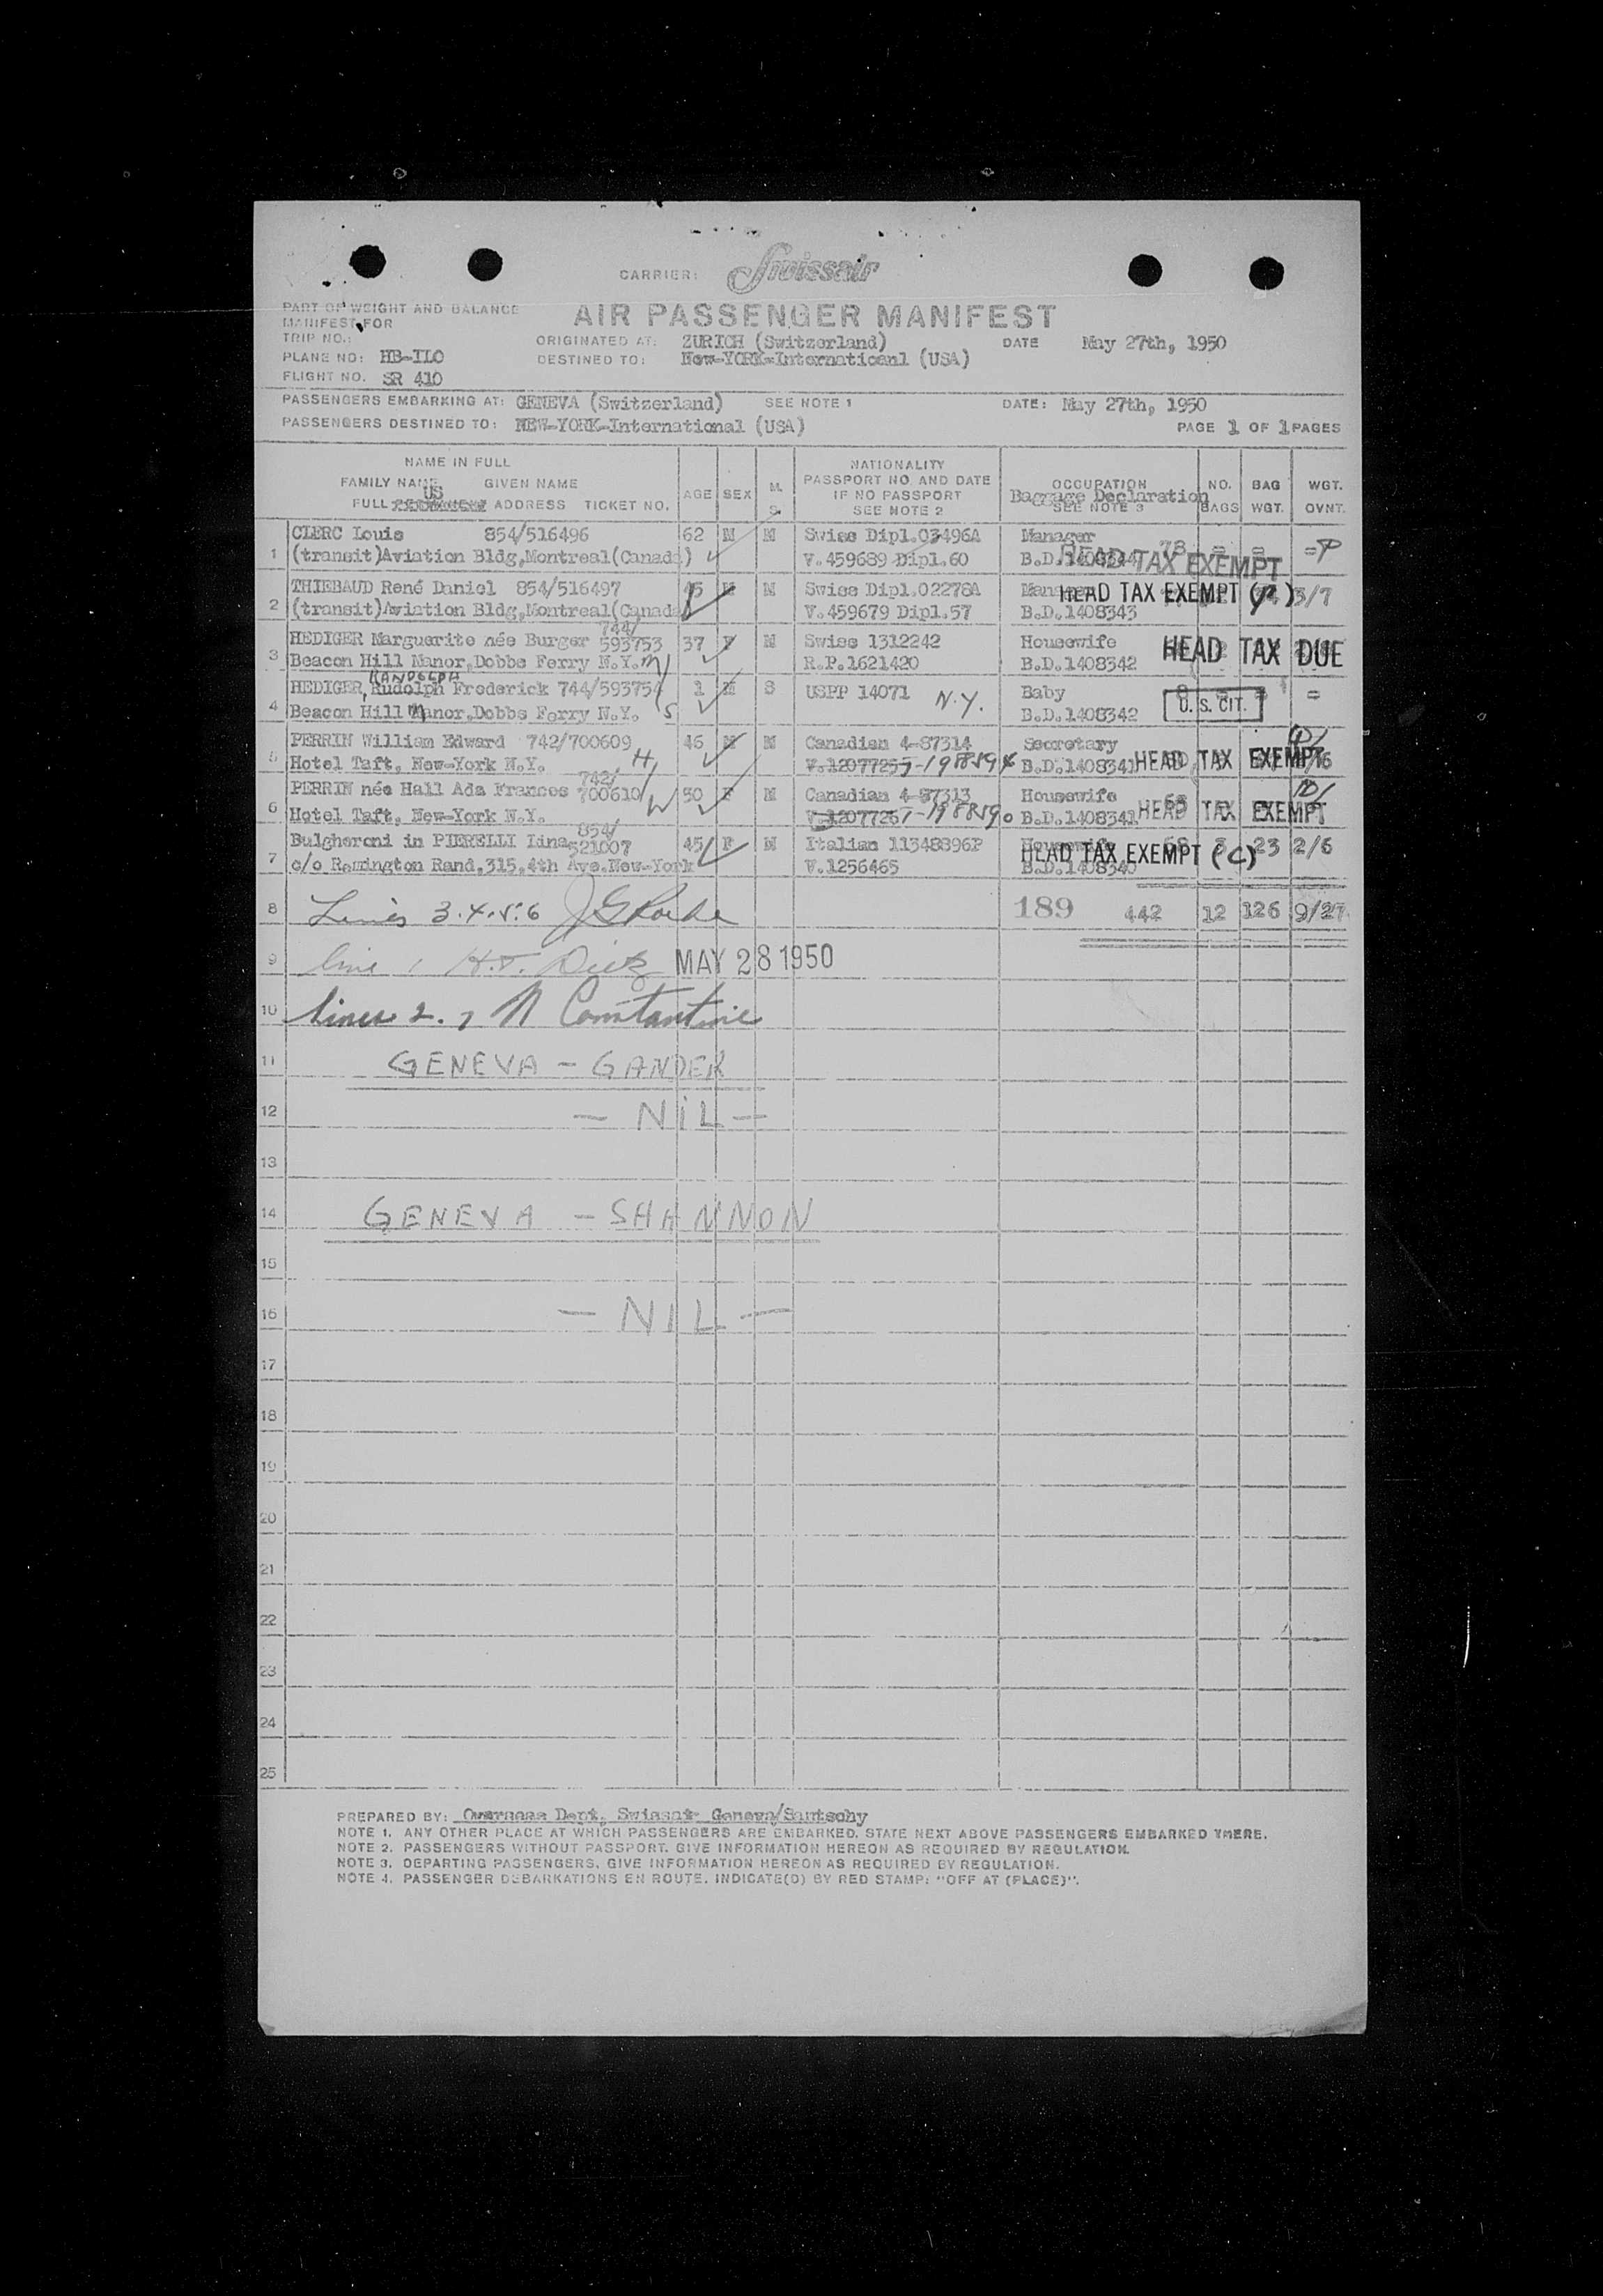 CARRIER: Swissair
PART OF WEIGHT AND BALANCE
MANIFEST FOR
AIR PASSENGER MANIFEST
TRIP NO.: ORIGINATED AT: ZURICH (Switzerland) DATE May 27th, 1950
PLANE NO: HB-ILO DESTINED TO: New-YORK-Internaticanl (USA)
FLIGHT NO. SR 410
PASSENGERS EMBARKING AT: GENEVA (Switzerland) SEE NOTE 1 DATE: May 27th, 1950
PASSENGERS DESTINED TO: NEW-YORK-International (USA) PAGE 1 OF 1 PAGES
NAME IN FULL NATIONALITY
FAMILY NAME GIVEN NAME AGE SEX M. S. PASSPORT NO AND DATE OCCUPATION NO. BAG WGT.
US IF NO PASSPORT Baggage Declaration
FULL ADDRESS TICKET NO. SEE NOTE 2 SEE NOTE 3 BAGS WGT. OVNT.
CLERC Louis 854/516496 62 M M Swiss Dipl.03496A Manager 78 = = =
1 (transit)Aviation Bldg,Montreal(Canada) V.459689 Dipl.60 B.D.1408344 HEAD TAX EXEMPT P
THIEBAUD René Daniel 854/516497 45 M M Swiss Dipl.02278A Manager HEAD TAX EXEMPT (P) 3/7
2 (transit)Aviation Bldg,Montreal(Canada V.459679 Dipl.57 B.D.1408343
HEDIGER Marguerite née Burger 744/593753 37 F M Swiss 1312242 Housewife HEAD TAX DUE
3 Beacon Hill Manor,Dobbs Ferry N.Y. M R.P.1621420 B.D.1408342
RANDOLPH
HEDIGER,Rudolph Frederick 744/593754 1 M S USPP 14071 N.Y. Baby 8 =
4 Beacon Hill Manor,Dobbs Ferry N.Y. S B.D.1408342 U.S. CIT.
PERRIN William Edward 742/700609 46 M M Canadian 4-87314 Secretary
5 Hotel Taft, New-York N.Y. H V.1207725 B.D.1408341 HEAD TAX EXEMPT
PERRIN née Hall Ada Frances 742/700610 W 50 F M Canadian 4-87313 Housewife
6 Hotel Taft, New-York N.Y. V.1207726 B.D.1408341 HEAD TAX EXEMPT
Bulgheroni in PIERELLI Lina 854/521007 45 F M Italian 11348896P Housewife 68 3 23 2/6
7 c/o Remington Rand,315,4th Ave.New-York V.1256465 B.D.1408340 HEAD TAX EXEMPT (C)
8 Lines 3.4.5.6 189 442 12 126 9/27
9 line 1 MAY 28 1950
10 lines 2. 7 N Constantine
11 GENEVA - GANDER
12 - NIL -
13
14 GENEVA - SHANNON
15
16 - NIL -
17
18
19
20
21
22
23
24
25
PREPARED BY: Overseas Dept. Swissair Geneva/Sautschy
NOTE 1. ANY OTHER PLACE AT WHICH PASSENGERS ARE EMBARKED, STATE NEXT ABOVE PASSENGERS EMBARKED THERE.
NOTE 2. PASSENGERS WITHOUT PASSPORT. GIVE INFORMATION HEREON AS REQUIRED BY REGULATION.
NOTE 3. DEPARTING PASSENGERS, GIVE INFORMATION HEREON AS REQUIRED BY REGULATION.
NOTE 4. PASSENGER DEBARKATIONS EN ROUTE. INDICATE(D) BY RED STAMP: "OFF AT (PLACE)".